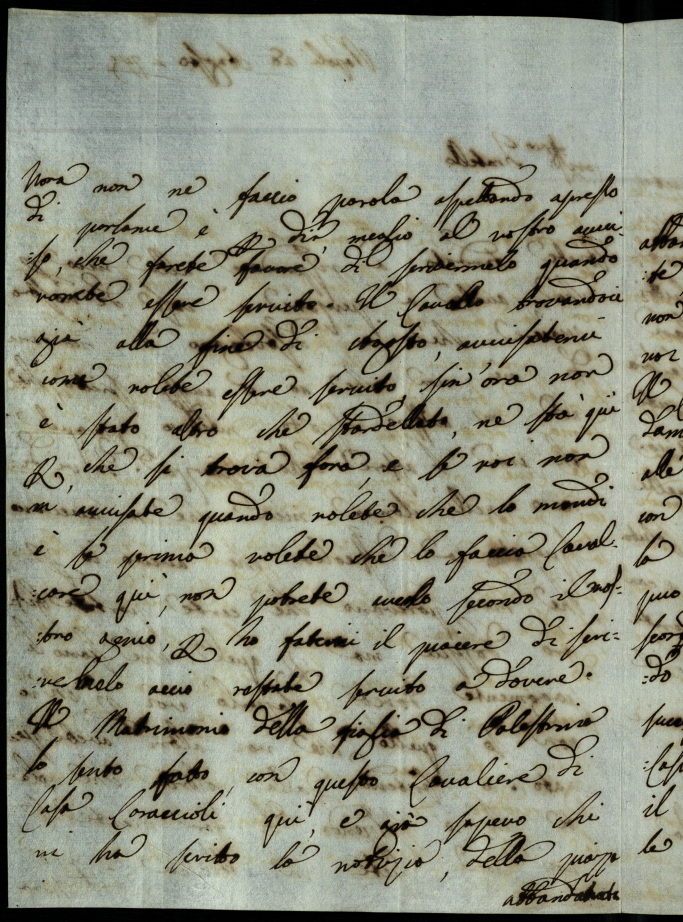 Nora non ne faccio parola aspettando apresso
di parlame è dir meglio al vostro avvi-
:so, che farete favore di scrivermelo quando
vorrete essere servito. Il Cavallo trovandosi
già alla fine di Agosto, avvisatemi
come volete essere servito, sin'ora non
è stato altro che stardellato, ne sta quì
che si trova fora, e se voi non
m avvisate quando volete che lo mandi
è se prima volete che lo faccia Caval-
:care quì, non potrete averlo secondo il vos-
:tro genio, ho fatemi il piacere di scri-
:vermelo acciò restate servito a dovere.
Il Matrimonio della figlia di Palestrina
lo sento fatto, con questo Cavaliere di
Casa Caraccioli quì, e già sapevo chi
vi ha scritto la notizia, della
abbandonata
abban
:te
non
voi
Il
dam
alle
con
la
può
scord
:do
succ
:Cas
il
le